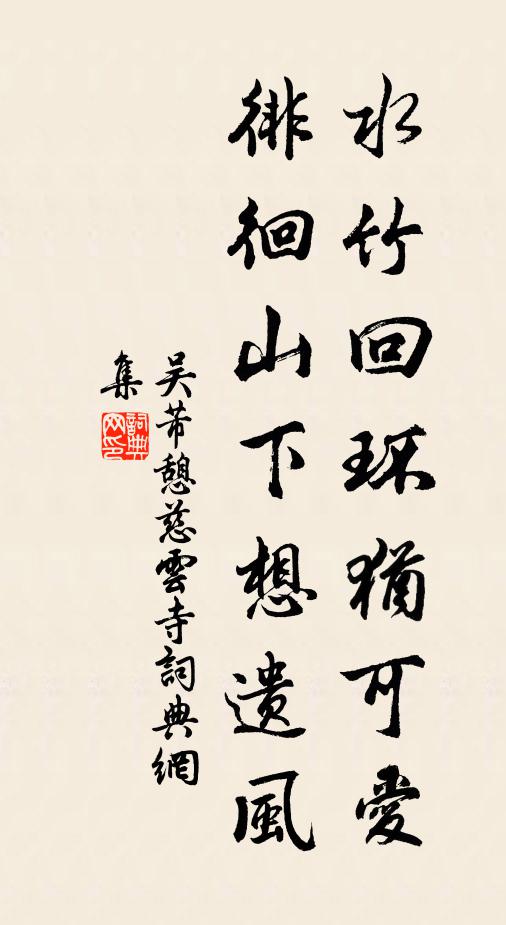 水竹回环猶可愛
徘徊山下想遺風
吴芾憩慈雲寺詞典網
集
詞典网印